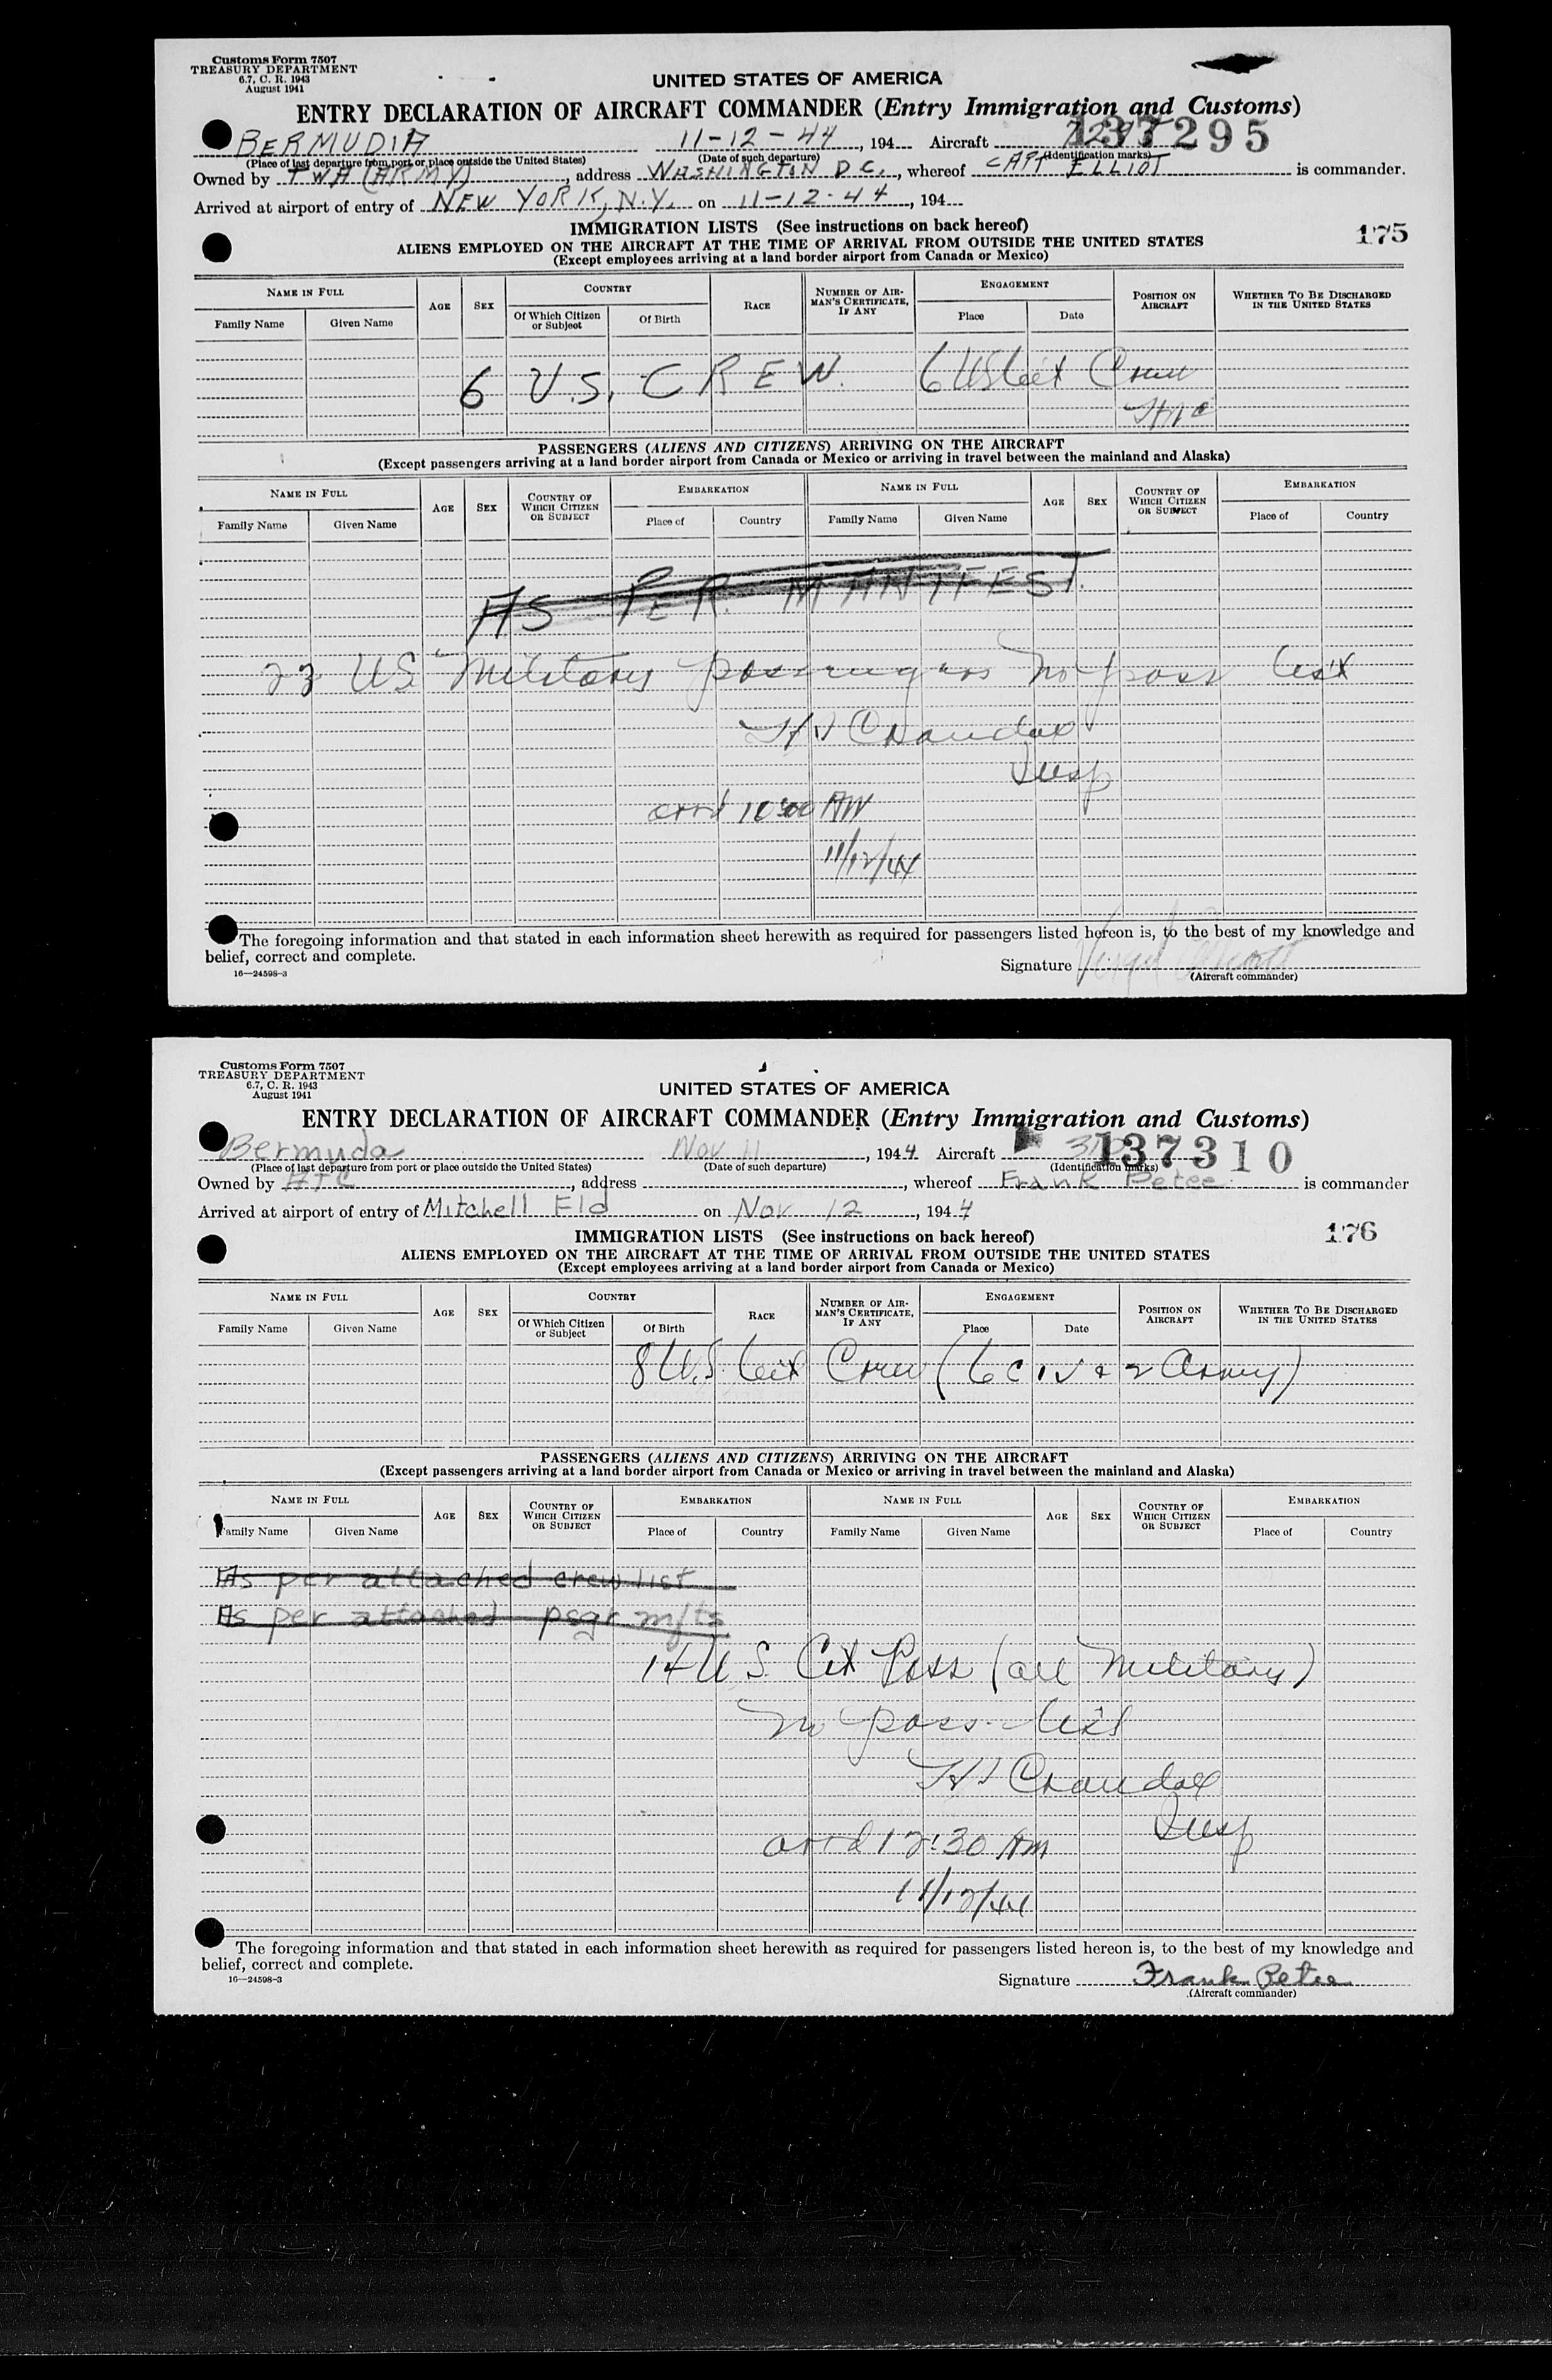 Customs Form 7507
TREASURY DEPARTMENT
6.7, C. R. 1943
August 1941
UNITED STATES OF AMERICA
ENTRY DECLARATION OF AIRCRAFT COMMANDER (Entry Immigration and Customs)
137295
BERMUDIA 11-12-44, 194 Aircraft
(Place of last departure from port or place outside the United States) (Date of such departure) (Identification marks)
Owned by TWA (ARMY), address WASHINGTON D.C., whereof CAPT ELLIOT is commander.
Arrived at airport of entry of NEW YORK, N.Y. on 11-12-44, 194
IMMIGRATION LISTS (See instructions on back hereof)
175
ALIENS EMPLOYED ON THE AIRCRAFT AT THE TIME OF ARRIVAL FROM OUTSIDE THE UNITED STATES
(Except employees arriving at a land border airport from Canada or Mexico)
NAME IN FULL AGE SEX COUNTRY RACE NUMBER OF AIR-MAN'S CERTIFICATE, IF ANY ENGAGEMENT POSITION ON AIRCRAFT WHETHER TO BE DISCHARGED IN THE UNITED STATES
Family Name Given Name Of Which Citizen or Subject Of Birth Place Date
6 U.S. CREW. 6 US Cit Crew
PASSENGERS (ALIENS AND CITIZENS) ARRIVING ON THE AIRCRAFT
(Except passengers arriving at a land border airport from Canada or Mexico or arriving in travel between the mainland and Alaska)
NAME IN FULL AGE SEX COUNTRY OF WHICH CITIZEN OR SUBJECT EMBARKATION NAME IN FULL AGE SEX COUNTRY OF WHICH CITIZEN OR SUBJECT EMBARKATION
Family Name Given Name Place of Country Family Name Given Name Place of Country
AS PER MANIFEST.
23 US Military passengers No pass list
Crandall
Insp
arrd 10:00 AM
11/12/44
The foregoing information and that stated in each information sheet herewith as required for passengers listed hereon is, to the best of my knowledge and
belief, correct and complete.
16—24598-3
Signature Virgil Elliott
(Aircraft commander)
Customs Form 7507
TREASURY DEPARTMENT
6.7, C. R. 1943
August 1941
UNITED STATES OF AMERICA
ENTRY DECLARATION OF AIRCRAFT COMMANDER (Entry Immigration and Customs)
137310
Bermuda Nov 11, 1944 Aircraft
(Place of last departure from port or place outside the United States) (Date of such departure) (Identification marks)
Owned by ATC, address , whereof Frank Petee is commander
Arrived at airport of entry of Mitchell Fld on Nov 12, 1944
IMMIGRATION LISTS (See instructions on back hereof)
176
ALIENS EMPLOYED ON THE AIRCRAFT AT THE TIME OF ARRIVAL FROM OUTSIDE THE UNITED STATES
(Except employees arriving at a land border airport from Canada or Mexico)
NAME IN FULL AGE SEX COUNTRY RACE NUMBER OF AIR-MAN'S CERTIFICATE, IF ANY ENGAGEMENT POSITION ON AIRCRAFT WHETHER TO BE DISCHARGED IN THE UNITED STATES
Family Name Given Name Of Which Citizen or Subject Of Birth Place Date
8 U.S. Cit Crew (6 civ & 2 Army)
PASSENGERS (ALIENS AND CITIZENS) ARRIVING ON THE AIRCRAFT
(Except passengers arriving at a land border airport from Canada or Mexico or arriving in travel between the mainland and Alaska)
NAME IN FULL AGE SEX COUNTRY OF WHICH CITIZEN OR SUBJECT EMBARKATION NAME IN FULL AGE SEX COUNTRY OF WHICH CITIZEN OR SUBJECT EMBARKATION
Family Name Given Name Place of Country Family Name Given Name Place of Country
As per attached crew list
As per attached psgr mfts
14 U.S. Cit Pass (all Military)
No pass. list
Crandall
Insp
arrd 12:30 AM
11/12/44
The foregoing information and that stated in each information sheet herewith as required for passengers listed hereon is, to the best of my knowledge and
belief, correct and complete.
16—24598-3
Signature Frank Petee
(Aircraft commander)